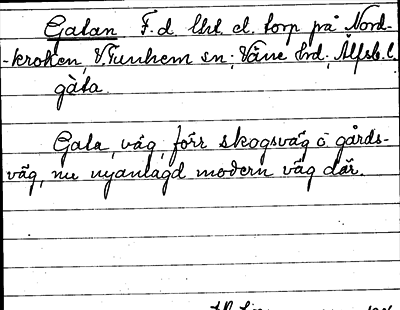 Gatan F.d. lht el. torp på Nord-
-kroken, V.Tunhem sn; Väne hd, Älfsb.l.
gàta
Gata, väg, förr skogsväg o gårds-
väg, nu nyanlagd modern väg där.